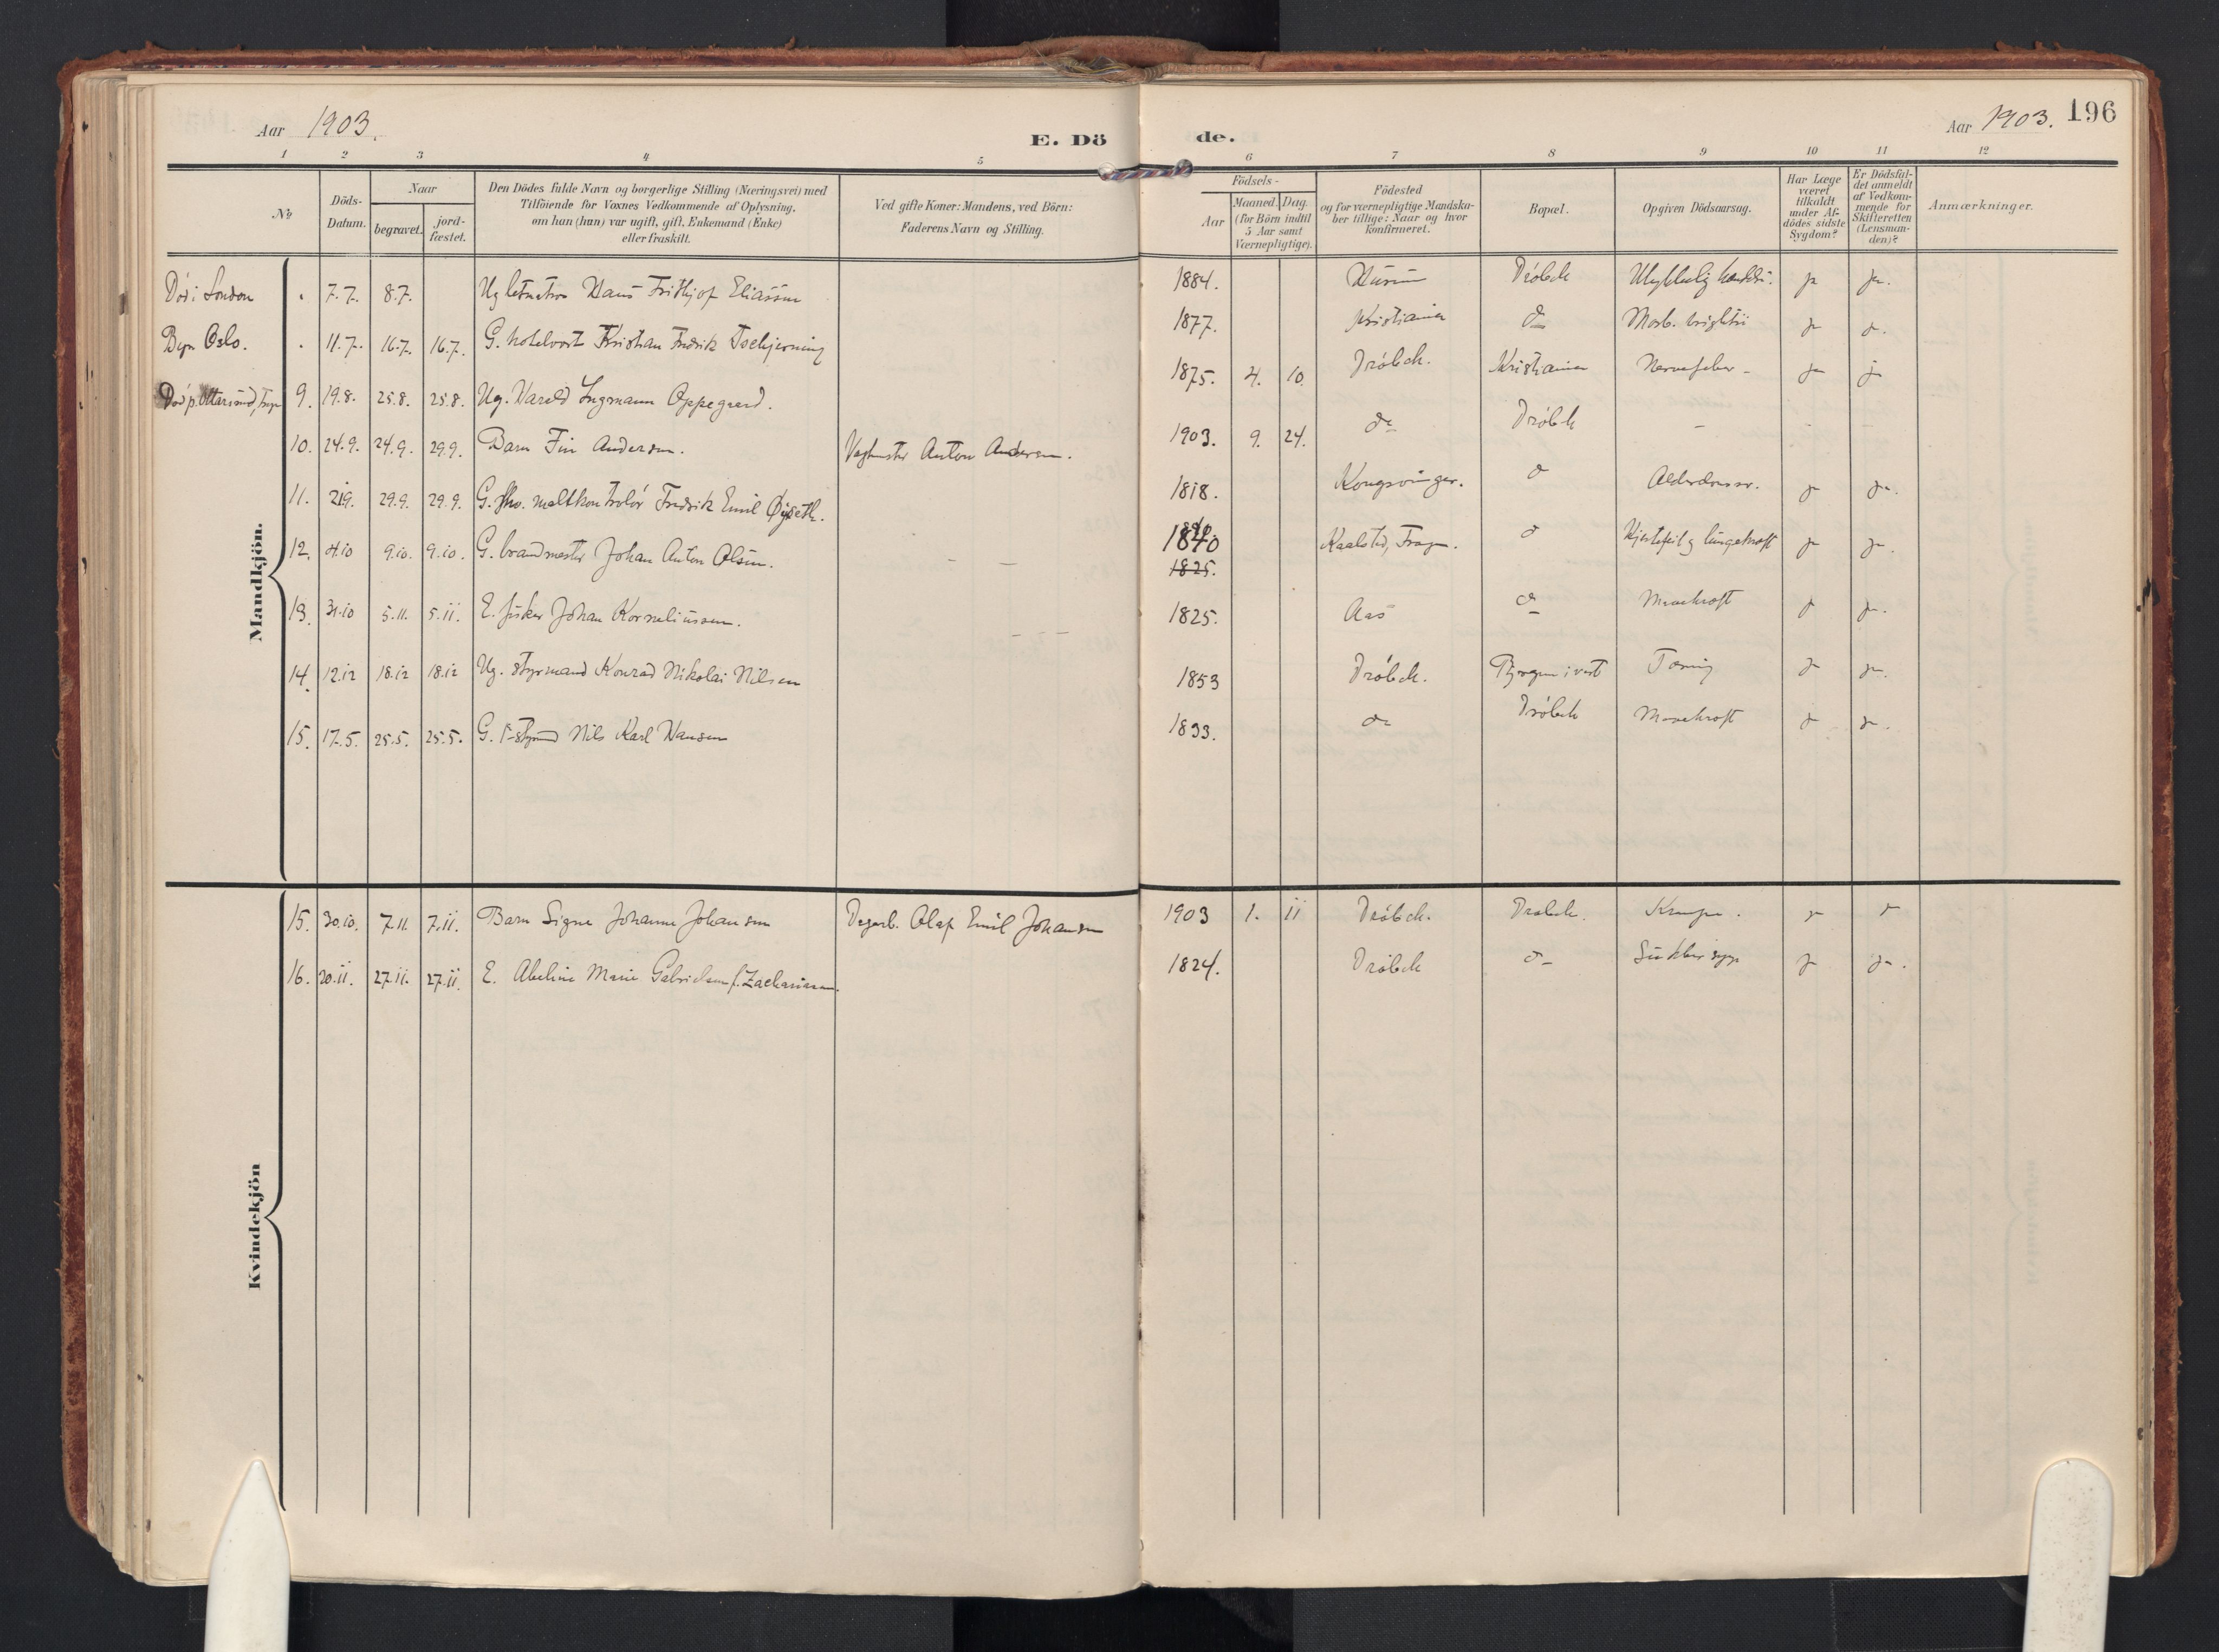 Aar 1903.
E. Döde.
Aar 1903. 196
1 2 3 4 5 6 7 8 9 10 11 12
No
Döds-Datum.
Naar
begravet.
jord-fæstet.
Den Dödes fulde Navn og borgerlige Stilling (Næringsvei) med
Tilföiende for Voxnes Vedkommende af Oplysning,
om han (hun) var ugift, gift, Enkemand (Enke)
eller fraskilt.
Ved gifte Koner: Mandens, ved Börn:
Faderens Navn og Stilling.
Födsels-
Aar
Maaned. Dag.
(for Börn indtil
5 Aar samt
Værnepligtige).
Födested
og for værnepligtige Mandska-
ber tillige: Naar og hvor
Konfirmeret.
Bopæl.
Opgiven Dödsaarsag.
Har Læge
været
tilkaldt
under Af-
dödes sidste
Sygdom?
Er Dödsfal-
det anmeldt
af Vedkom-
mende for
Skifteretten
(Lensman-
den)?
Anmærkninger.
Mandkjön.
Död i London 7.7. 8.7. Ug Hans Frithjof Eliassen 1884. Hurum Dröbak ja ja.
Oslo. 11.7. 16.7. 16.7. G. hotelvært Kristian Fredrik Tschjerning 1877. Kristiania do Morb. brightii ja ja.
9. 19.8. 25.8. 25.8. Ug. Harald Ingmann Oppegaard. 1875. 4. 10. Dröbak. Kristiania Nervefeber - ja ja
10. 24.9. 24.9. 29.9. Barn Fin Andersen. Anton Andersen. 1903. 9. 24. do Dröbak - - -
11. 29.9. 29.9. G. Fredrik Emil 1818. Kongsvinger. do ja ja.
12. 4.10 9.10. 9.10. G. brandmester Johan Anton Olsen. - - 1840 Frogn. do Hjertefeil og lungekræft ja ja.
1825.
13. 31.10 5.11. 5.11. E. fisker Johan Korneliussen. - - - 1825. Aas do Mavekræft ja ja.
14. 12.12 18.12 18.12 Ug. Styrmand Konrad Nikolai Nilsen 1853 Dröbak. Tæring ja ja.
15. 17.5. 25.5. 25.5. G. Nils Karl Hansen 1833. do Dröbak Mavekræft ja ja.
Kvindekjön
15. 30.10. 7.11. 7.11. Barn Signe Johanne Johansen Olaf Emil Johansen 1903 1. 11 Dröbak. Drøbak. Krampe. ja ja
16. 20.11. 27.11. 27.11. E. Abeline Marie Gabrielsen f. Zachariasen. 1824. Dröbak do ja ja.